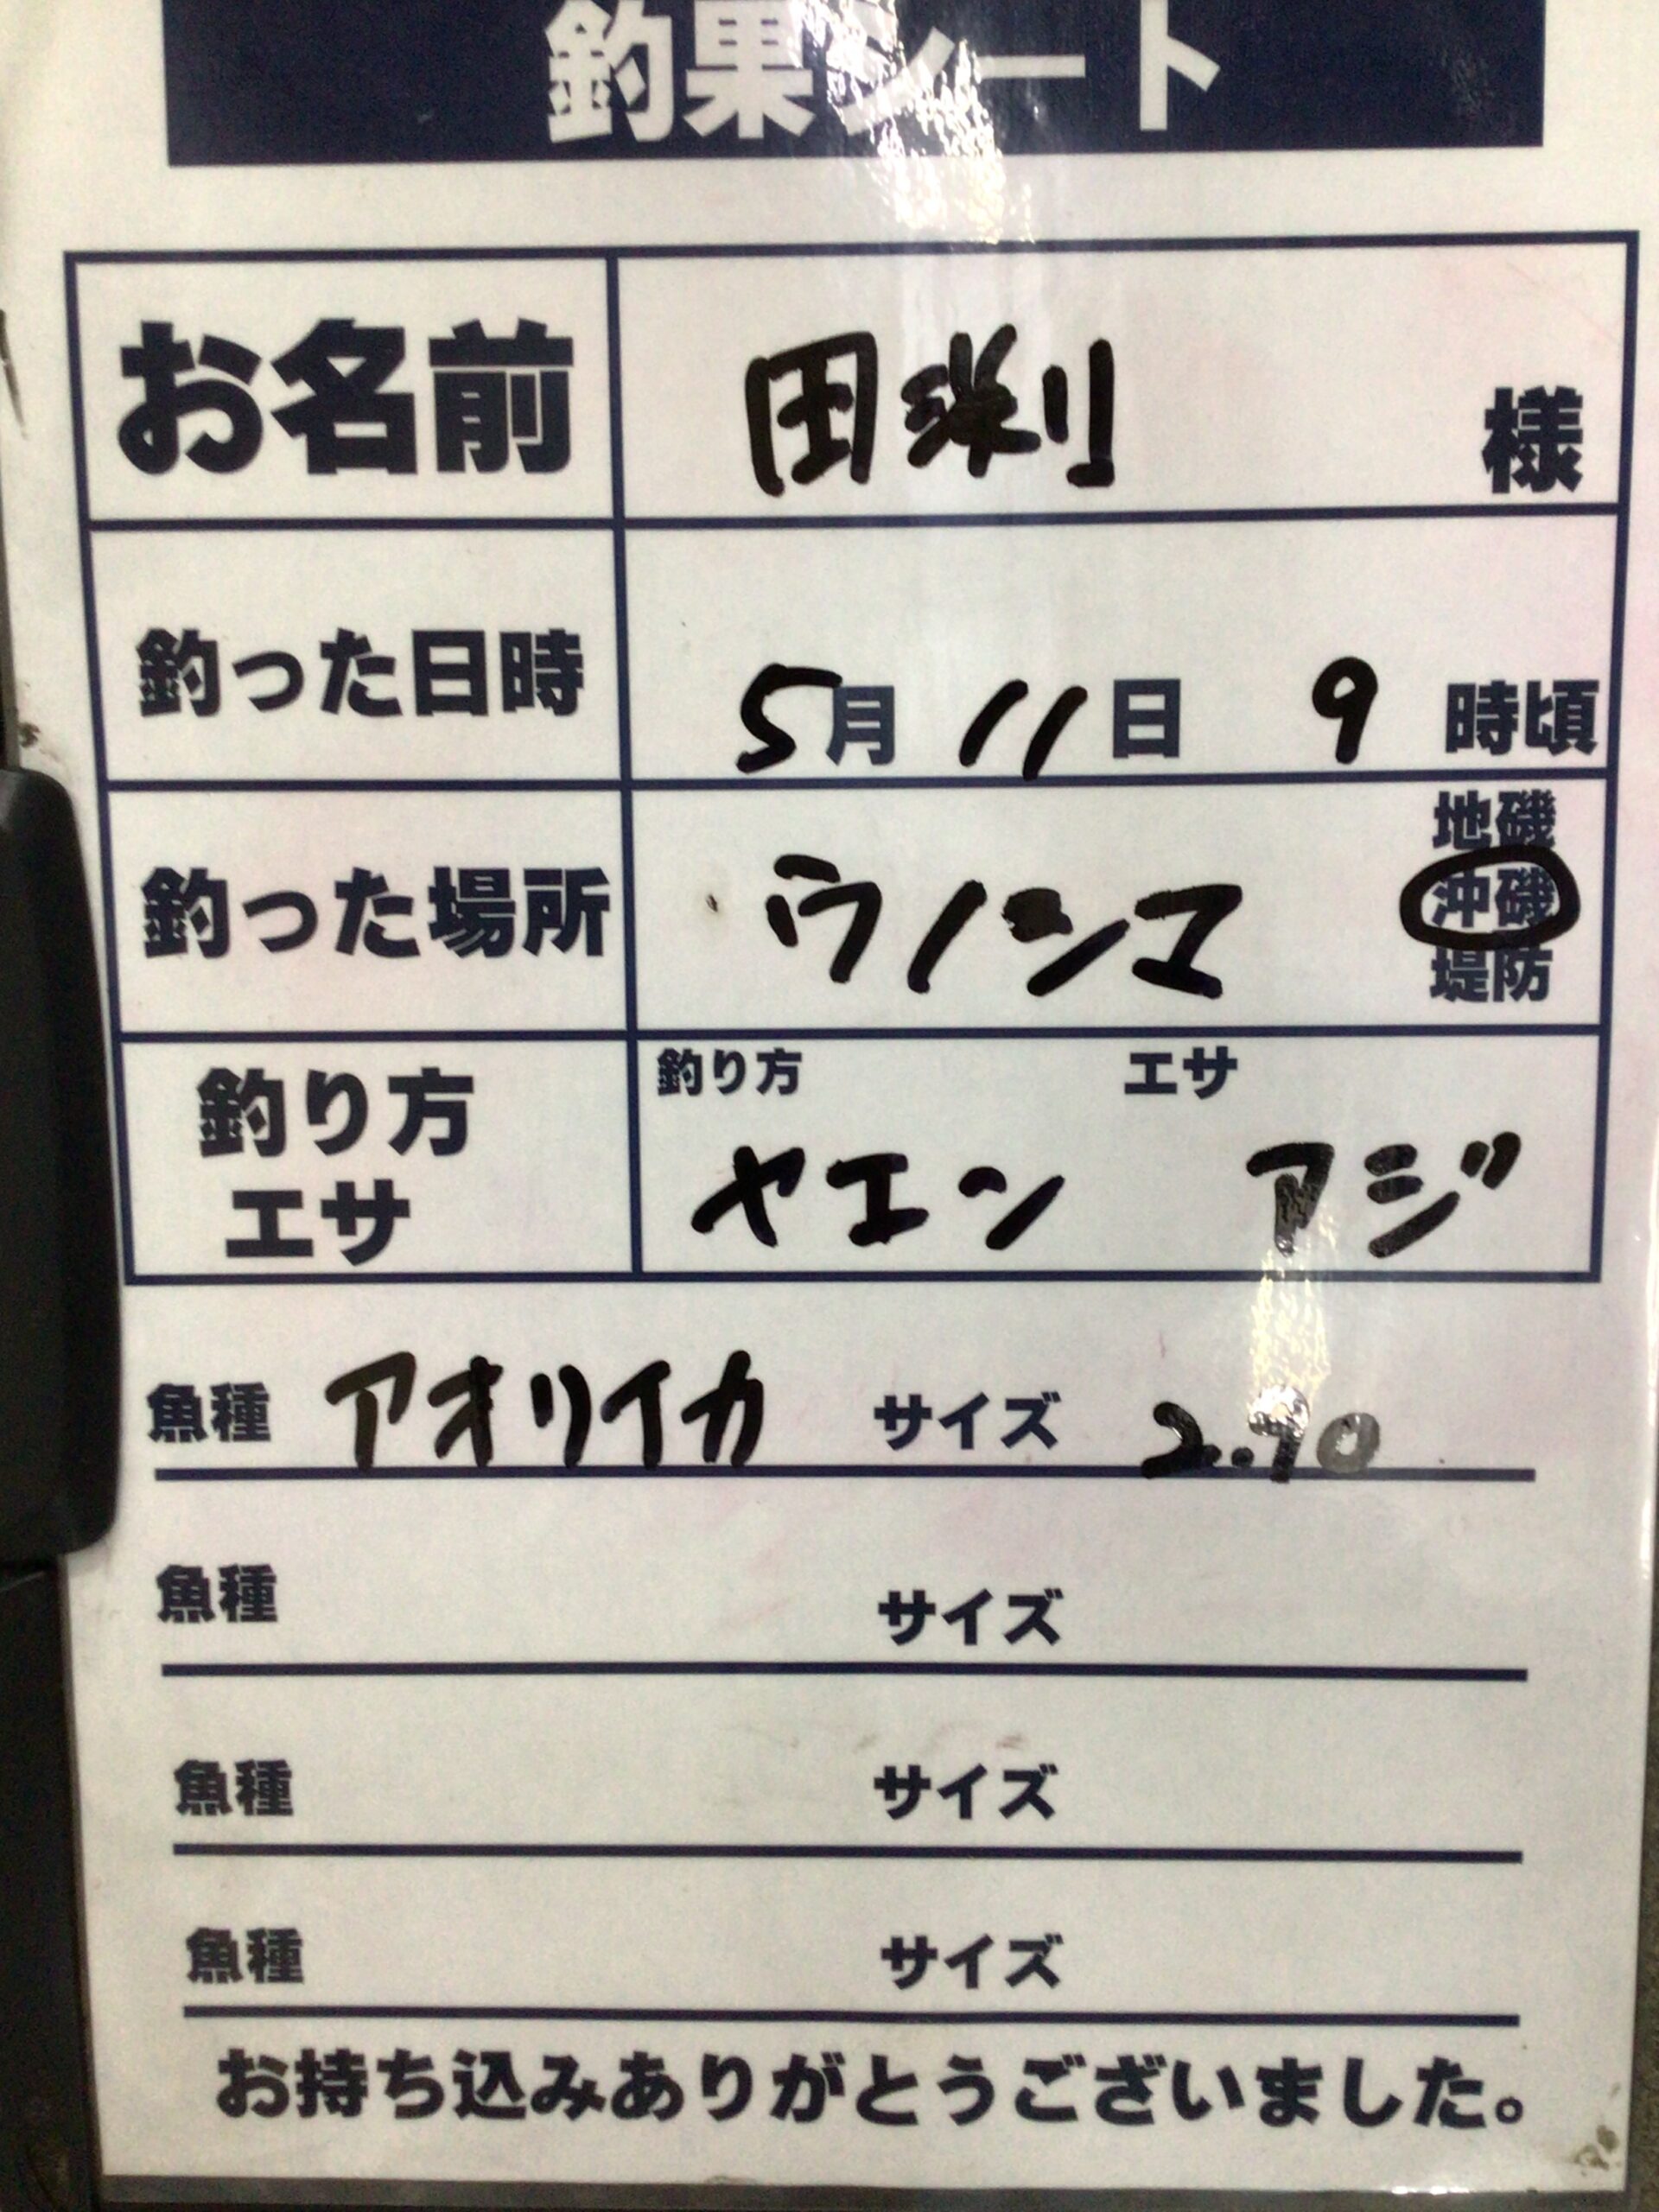 釣果シート
お名前 田渕 様
釣った日時 5月 11日 9 時頃
地磯
釣った場所 沖磯
堤防
釣り方 エサ
釣り方
エサ
ヤエン アジ
魚種 アオリイカ サイズ 2.70
魚種 サイズ
魚種 サイズ
魚種 サイズ
お持ち込みありがとうございました。